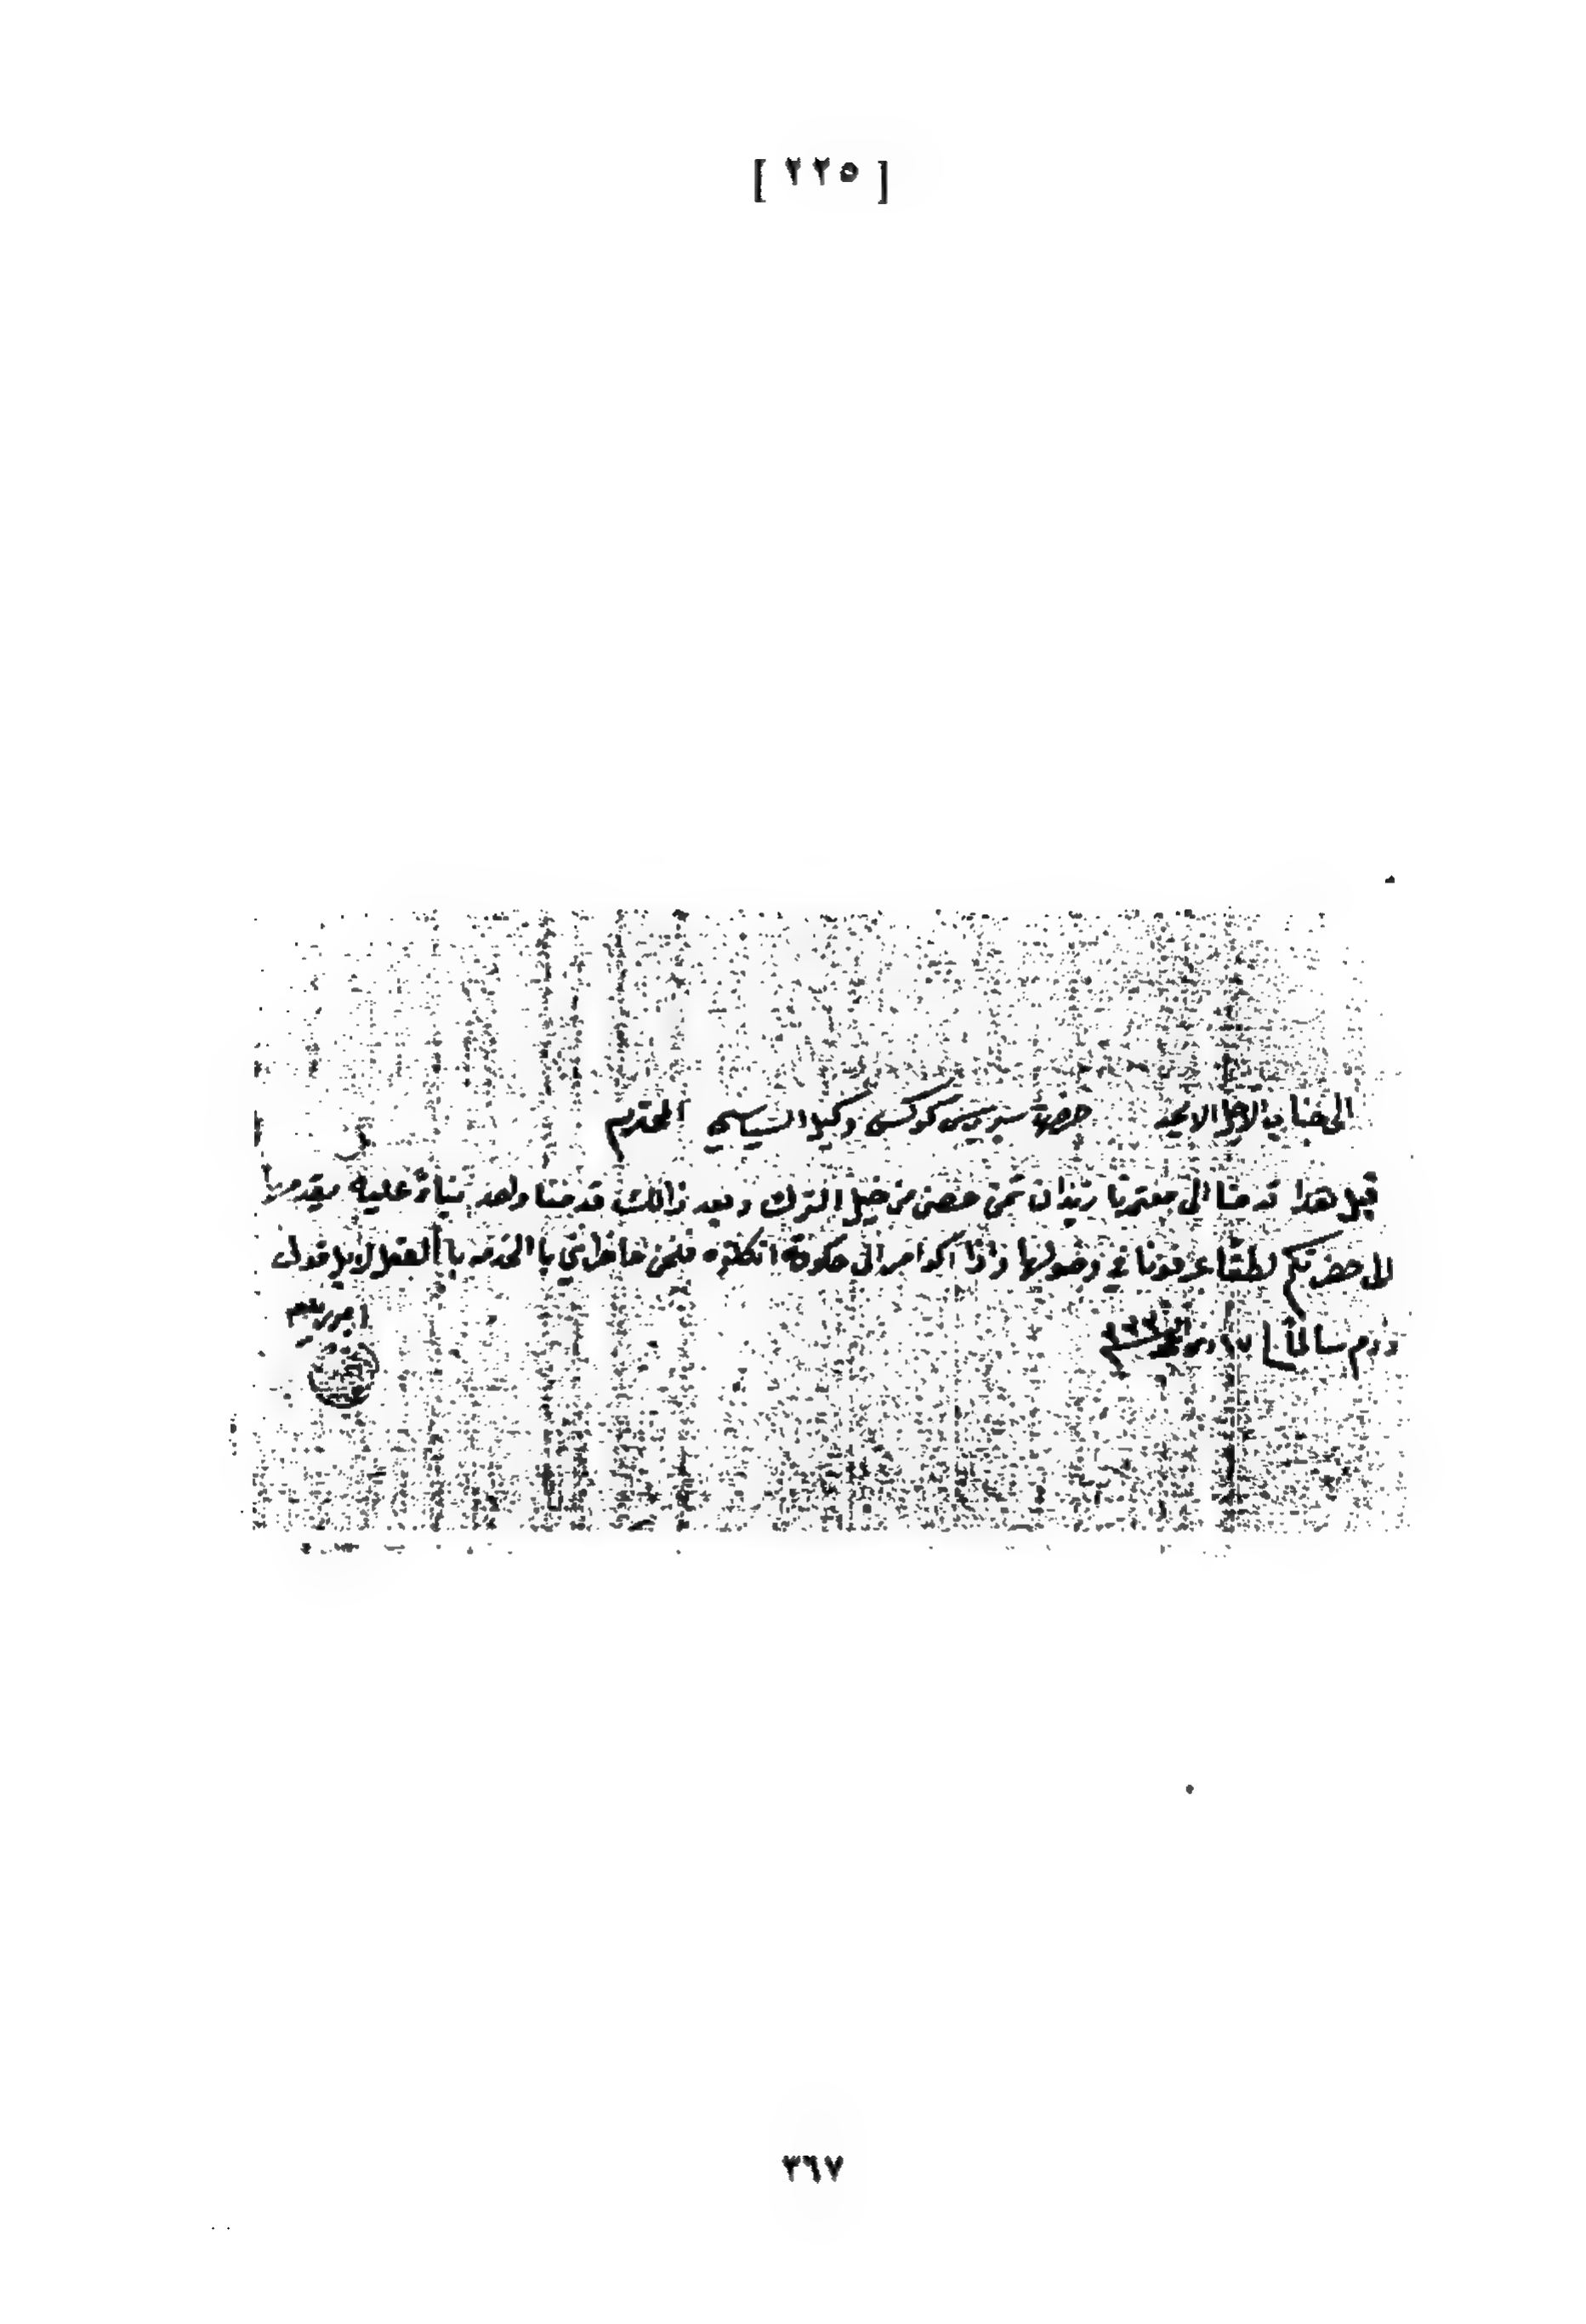 [ ٢٢٥ ]
الى جناب الاجل الامجد حضرة سربرسي كوكس وكيل السياسي المحترم
قبل هذا قد منا الى معتمرنا زيدان ثمن حصن من خيل الترك وبعد ذالك قدمنا واحد بناءً عليه
الى حضرتكم لطفًا عرفونا في وصولها واذا اكو امر الى حكومة انكلتره فنحن حاضرين باالخدمه باالفعل لا بل قول
ودم سالمًا
٣٦٧